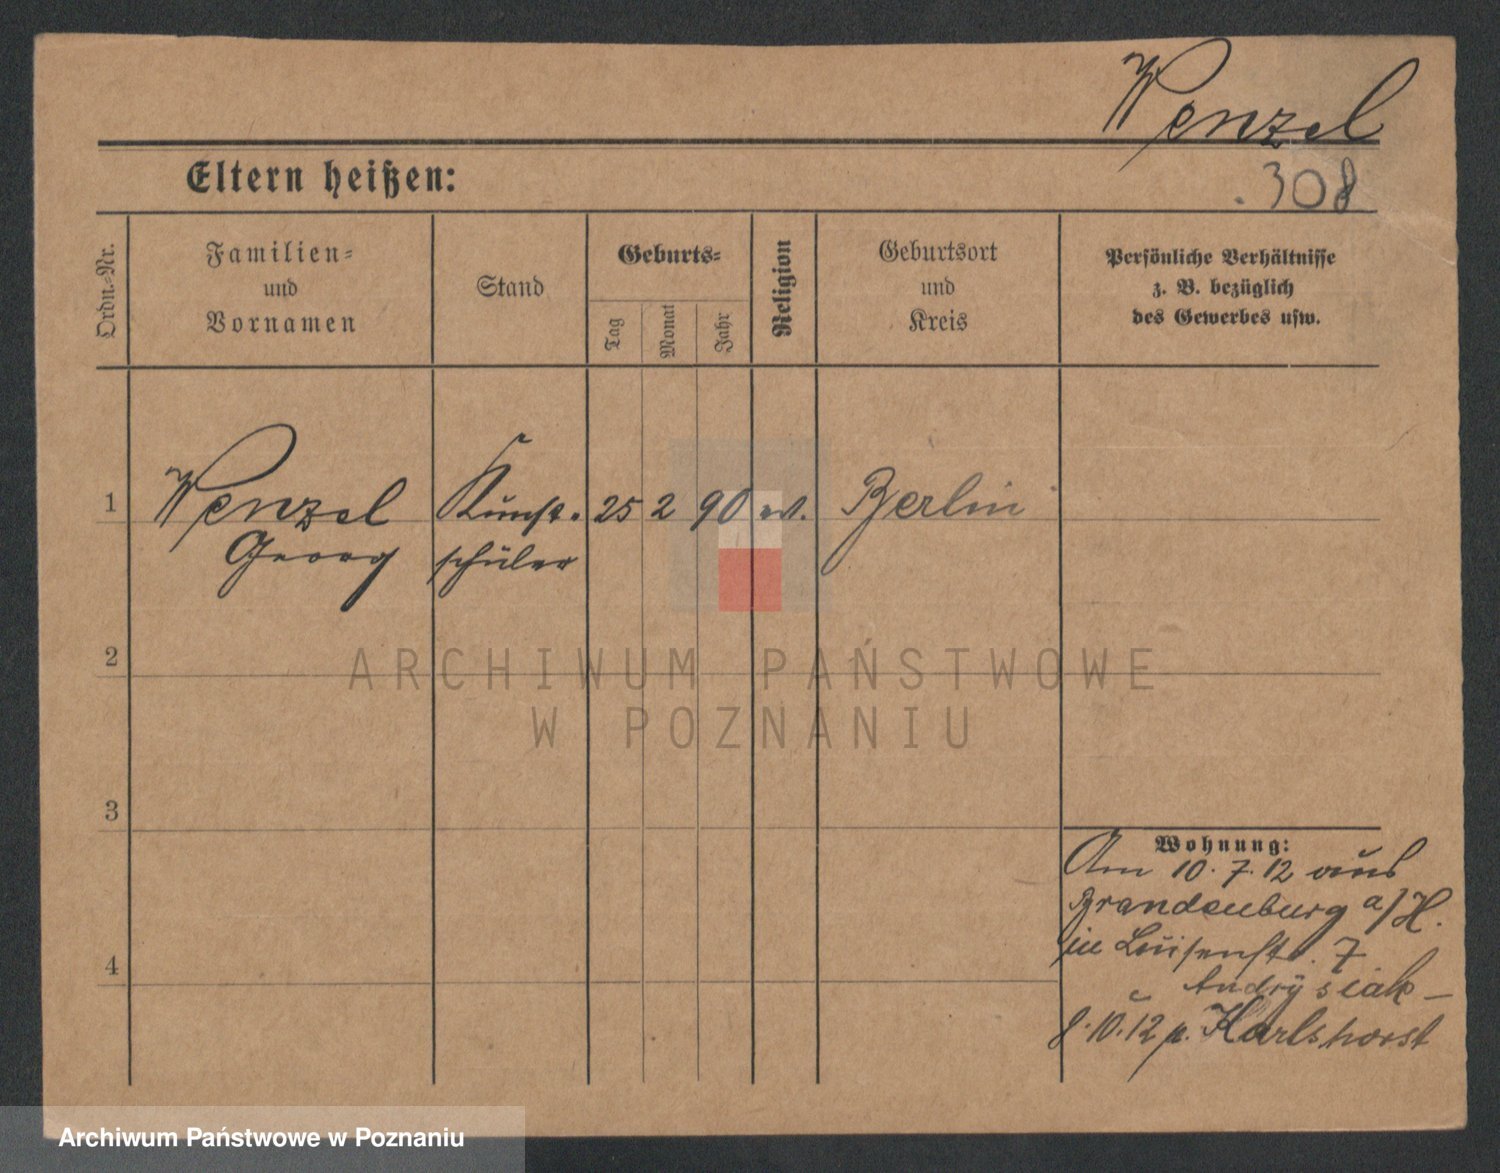 Wenzel
Eltern heißen:
308
Ordn.-Nr.
Familien-
und
Vornamen
Stand
Geburts-
Tag
Monat
Jahr
Religion
Geburtsort
und
Kreis
Persönliche Verhältnisse
z. B. bezüglich
des Gewerbes usw.
1
Wenzel
Georg
Kunst-
schüler
25
2
90
ev.
Berlin
2
ARCHIWUM PAŃSTWOWE
W POZNANIU
3
Wohnung:
Am 10.7.12 aus
Brandenburg a/H.
in Luisenstr. 7
Andrysiak –
4
8.10.12 n. Karlshorst
Archiwum Państwowe w Poznaniu